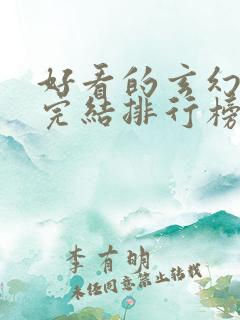 好看的玄幻
完结排行榜
李有明
未经同意禁止转载